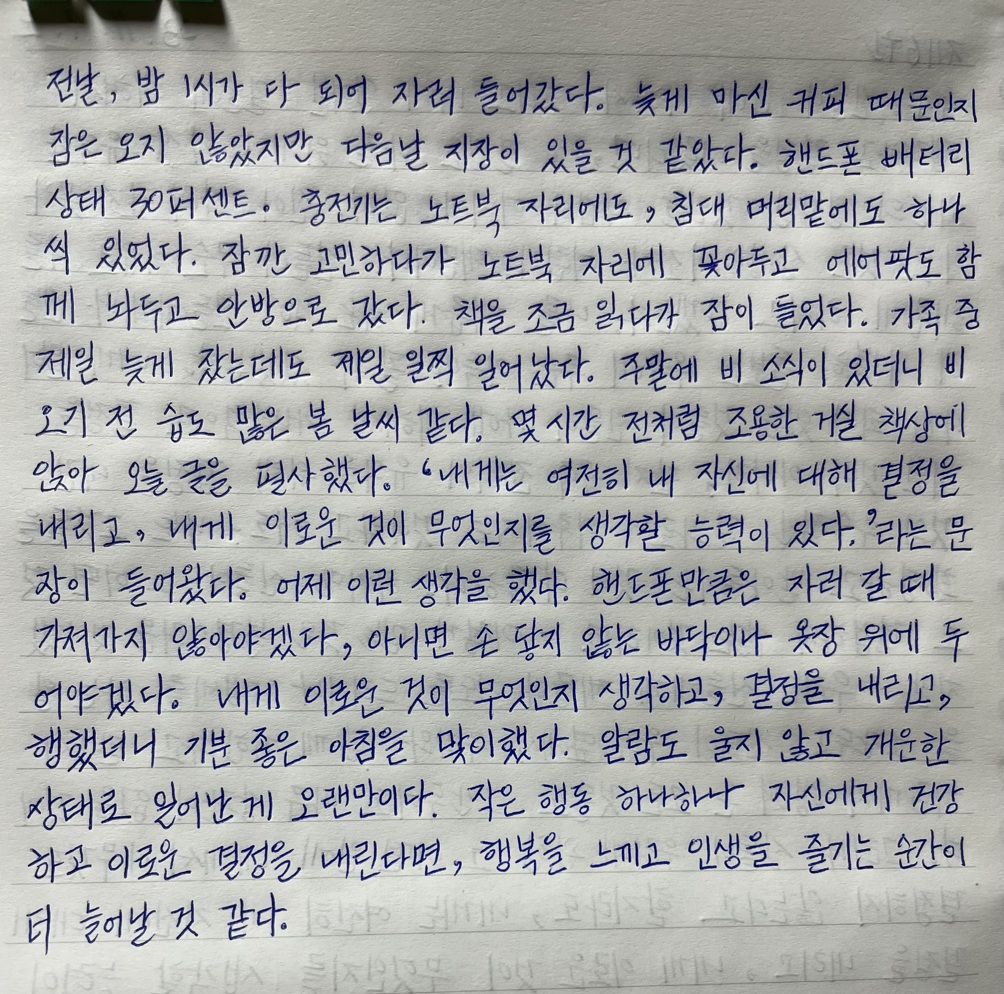 전날, 밤 1시가 다 되어 자러 들어갔다. 늦게 마신 커피 때문인지
잠은 오지 않았지만 다음날 지장이 있을 것 같았다. 핸드폰 배터리
상태 30퍼센트. 충전기는 노트북 자리에도, 침대 머리맡에도 하나
씩 있었다. 잠깐 고민하다가 노트북 자리에 꽂아두고 에어팟도 함
께 놔두고 안방으로 갔다. 책을 조금 읽다가 잠이 들었다. 가족 중
제일 늦게 잤는데도 제일 일찍 일어났다. 주말에 비 소식이 있더니 비
오기 전 습도 많은 봄 날씨 같다. 몇 시간 전처럼 조용한 거실 책상에
앉아 오늘 글을 필사했다. ‘내게는 여전히 내 자신에 대해 결정을
내리고, 내게 이로운 것이 무엇인지를 생각할 능력이 있다.’라는 문
장이 들어왔다. 어제 이런 생각을 했다. 핸드폰만큼은 자러 갈 때
가져가지 않아야겠다, 아니면 손 닿지 않는 바닥이나 옷장 위에 두
어야겠다. 내게 이로운 것이 무엇인지 생각하고, 결정을 내리고,
행했더니 기분 좋은 아침을 맞이했다. 알람도 울지 않고 개운한
상태로 일어난 게 오랜만이다. 작은 행동 하나하나 자신에게 건강
하고 이로운 결정을 내린다면, 행복을 느끼고 인생을 즐기는 순간이
더 늘어날 것 같다.